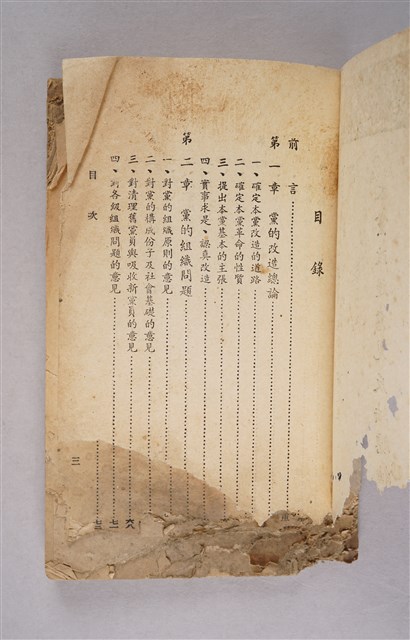 目錄
前言
第一章 黨的改造總論
一、確定本黨改造的道路
二、確定本黨革命的性質
三、提出本黨基本的主張
四、實事求是、認真改造
第二章 黨的組織問題
一、對黨的組織原則的意見
二、對黨的構成份子及社會基礎的意見
三、對清理舊黨員與吸收新黨員的意見 六八
四、對各級組織問題的意見 七一
七三
目次
三